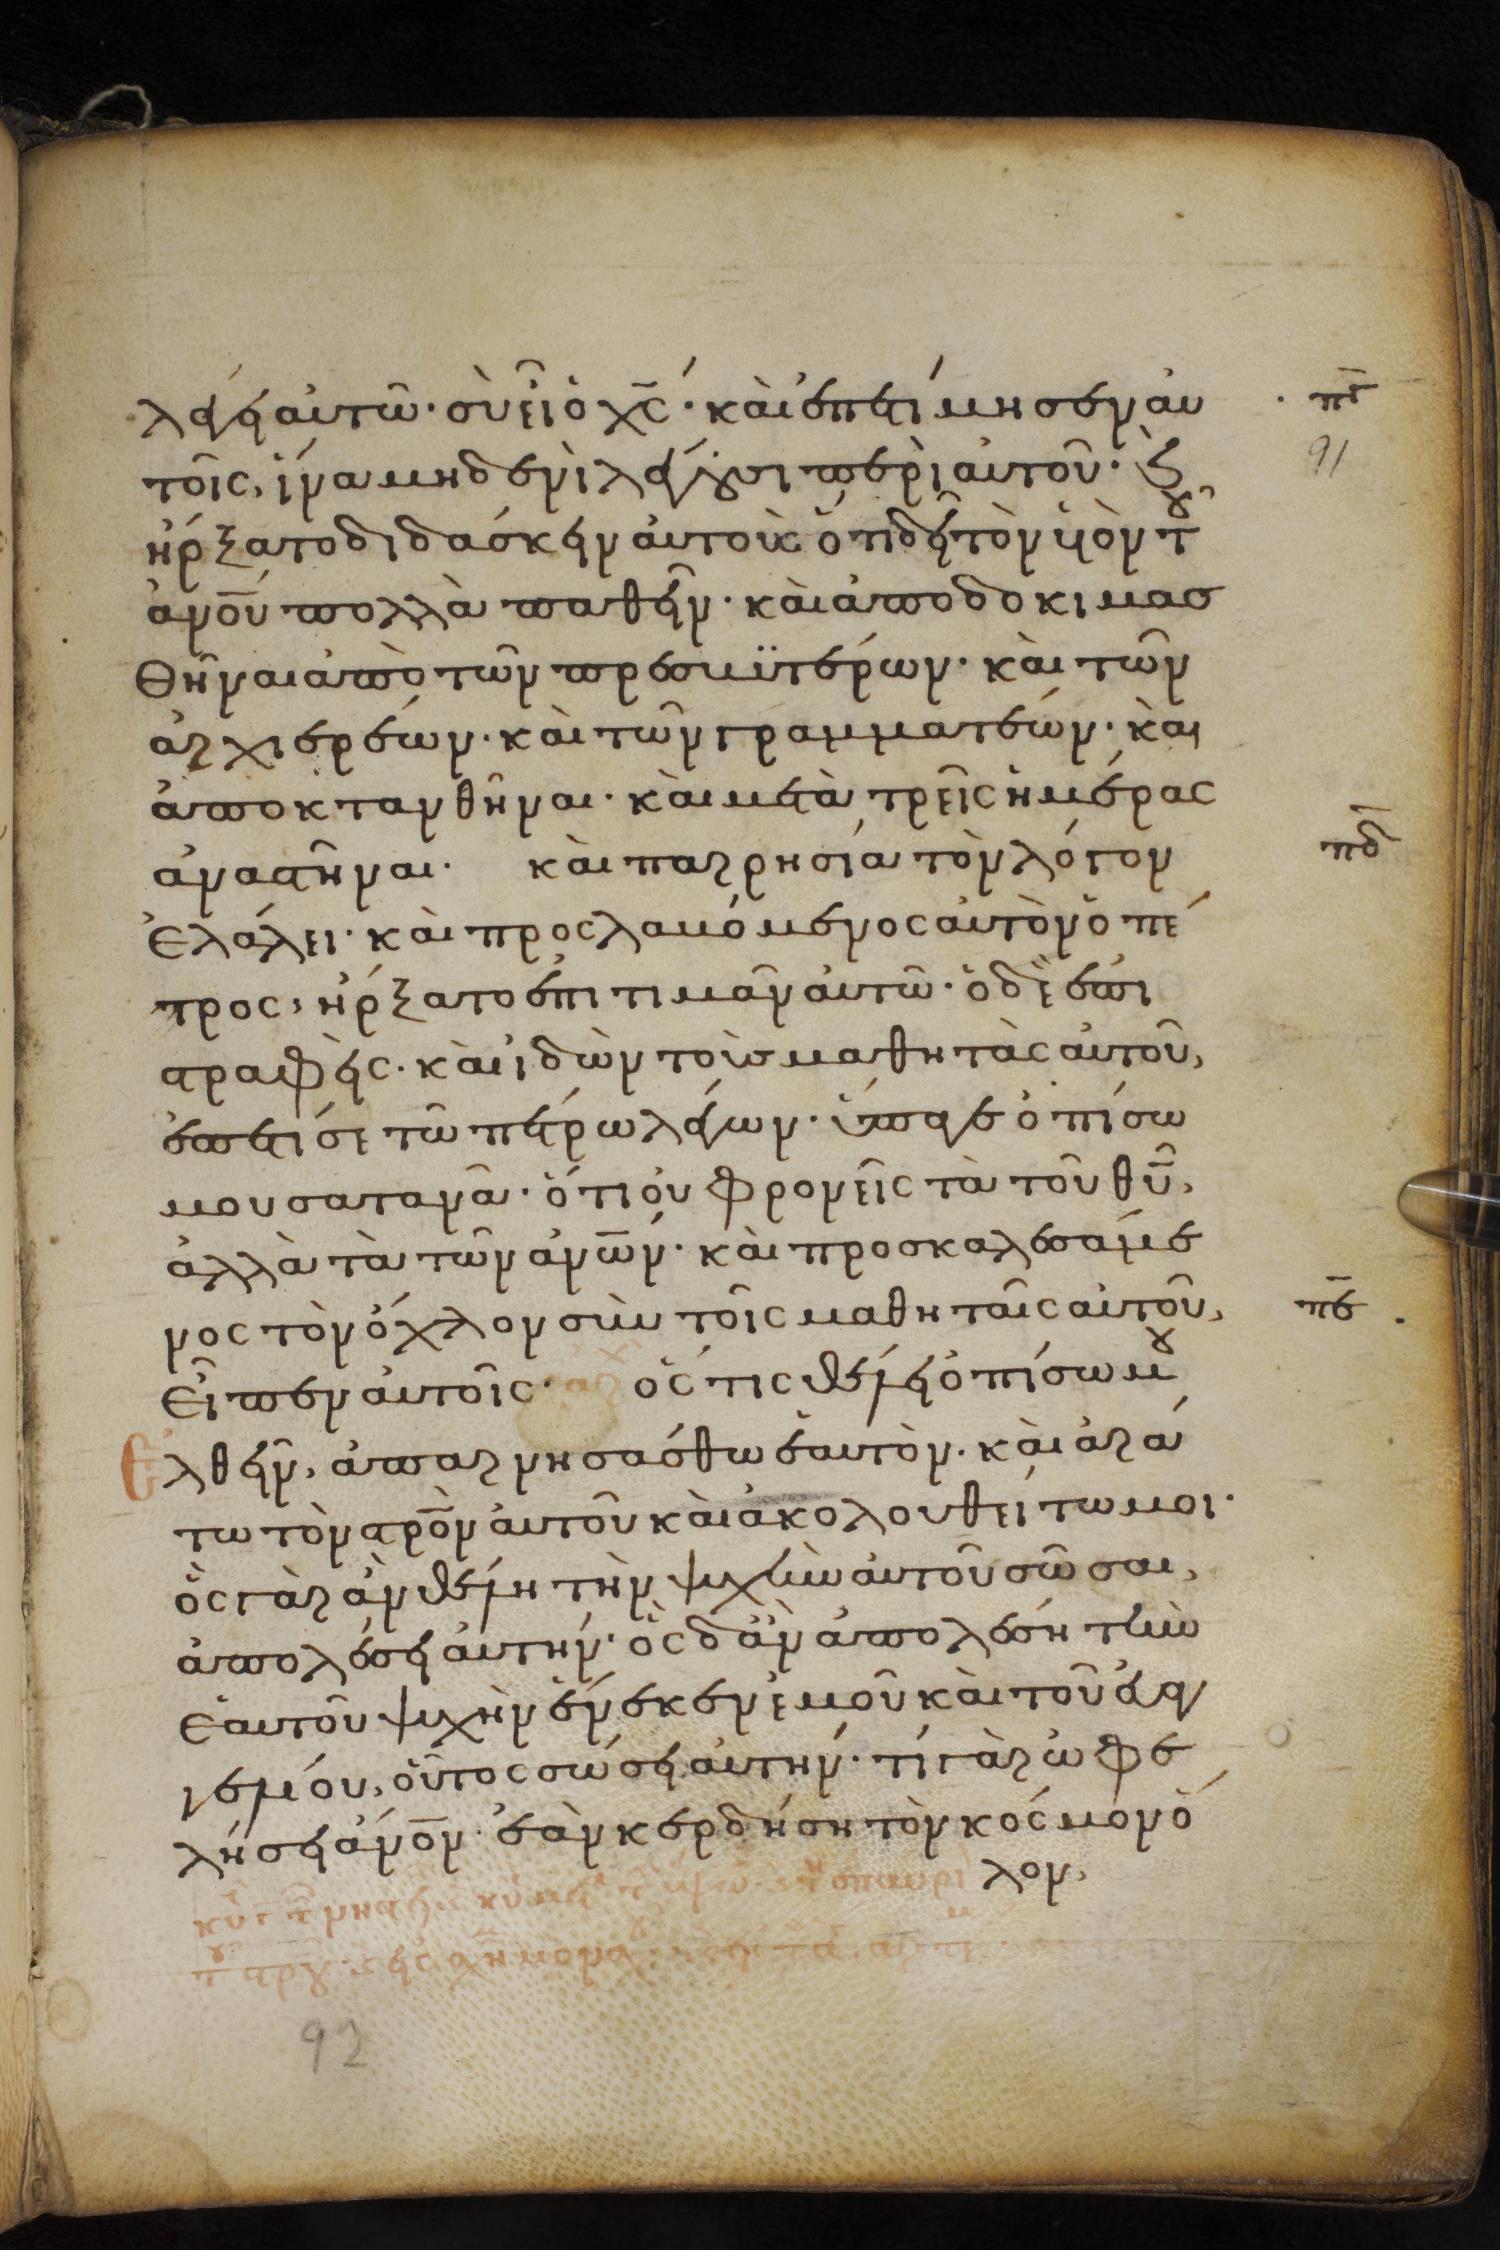 λέγει αὐτῶ· σὺ εἶ ὁ χς̅· καὶ ἐπετίμησεν αὐ
πγ̅
τοῖς, ἵνα μηδενὶ λέγωσι περὶ αὐτοῦ· καὶ
91
ἤρξατο διδάσκειν αὐτοὺς ὅτι δεῖ τὸν υἱὸν τοῦ
ἀνου̅ πολλὰ παθεῖν· καὶ ἀποδοκιμασ
θῆναι ἀπὸ τῶν πρεσβυτέρων· καὶ τῶν
ἀρχιερέων· καὶ τῶν γραμματέων· καὶ
ἀποκτανθῆναι· καὶ μετὰ τρεῖς ἡμέρας
ἀναστῆναι· καὶ παρρησία τὸν λόγον
πδ̅
ἐλάλει· καὶ προςλαβόμενος αὐτὸν ὁ πέ
τρος, ἤρξατο ἐπιτιμᾶν αὐτῶ· ὁ δὲ ἐπι
στραφεὶς· καὶ ἰδὼν τοὺς μαθητὰς αὐτοῦ,
ἐπετίμησε τῶ πέτρω λέγων· ὕπαγε ὀπίσω
μου σατανᾶ· ὅτι οὐ φρονεῖς τὰ τοῦ θυ̅,
ἀλλὰ τὰ τῶν ἀνω̅ν· καὶ προσκαλεσάμε
νος τὸν ὄχλον σὺν τοῖς μαθηταῖς αὐτοῦ,
πε̅
εἶπεν αὐτοῖς· ὅς τις θέλει ὀπίσω μου
ἐλθεῖν, ἀπαρνησάσθω ἑαυτὸν· καὶ ἀρά
τω τὸν στρο̅ν αὐτοῦ καὶ ἀκολουθείτω μοι·
ὃς γὰρ ἂν θέλη τὴν ψυχὴν αὐτοῦ σῶσαι,
ἀπολέσει αὐτήν· ὃς δ ἂν ἀπολέση τὴν
ἑαυτοῦ ψυχὴν ἕνεκεν ἐμοῦ καὶ τοῦ εὐαγ
γελίου, οὗτος σώσει αὐτήν· τί γὰρ ὠφε
λήσει ἄνο̅ν· ἐὰν κερδήση τὸν κόσμον ὅ
λον,
92